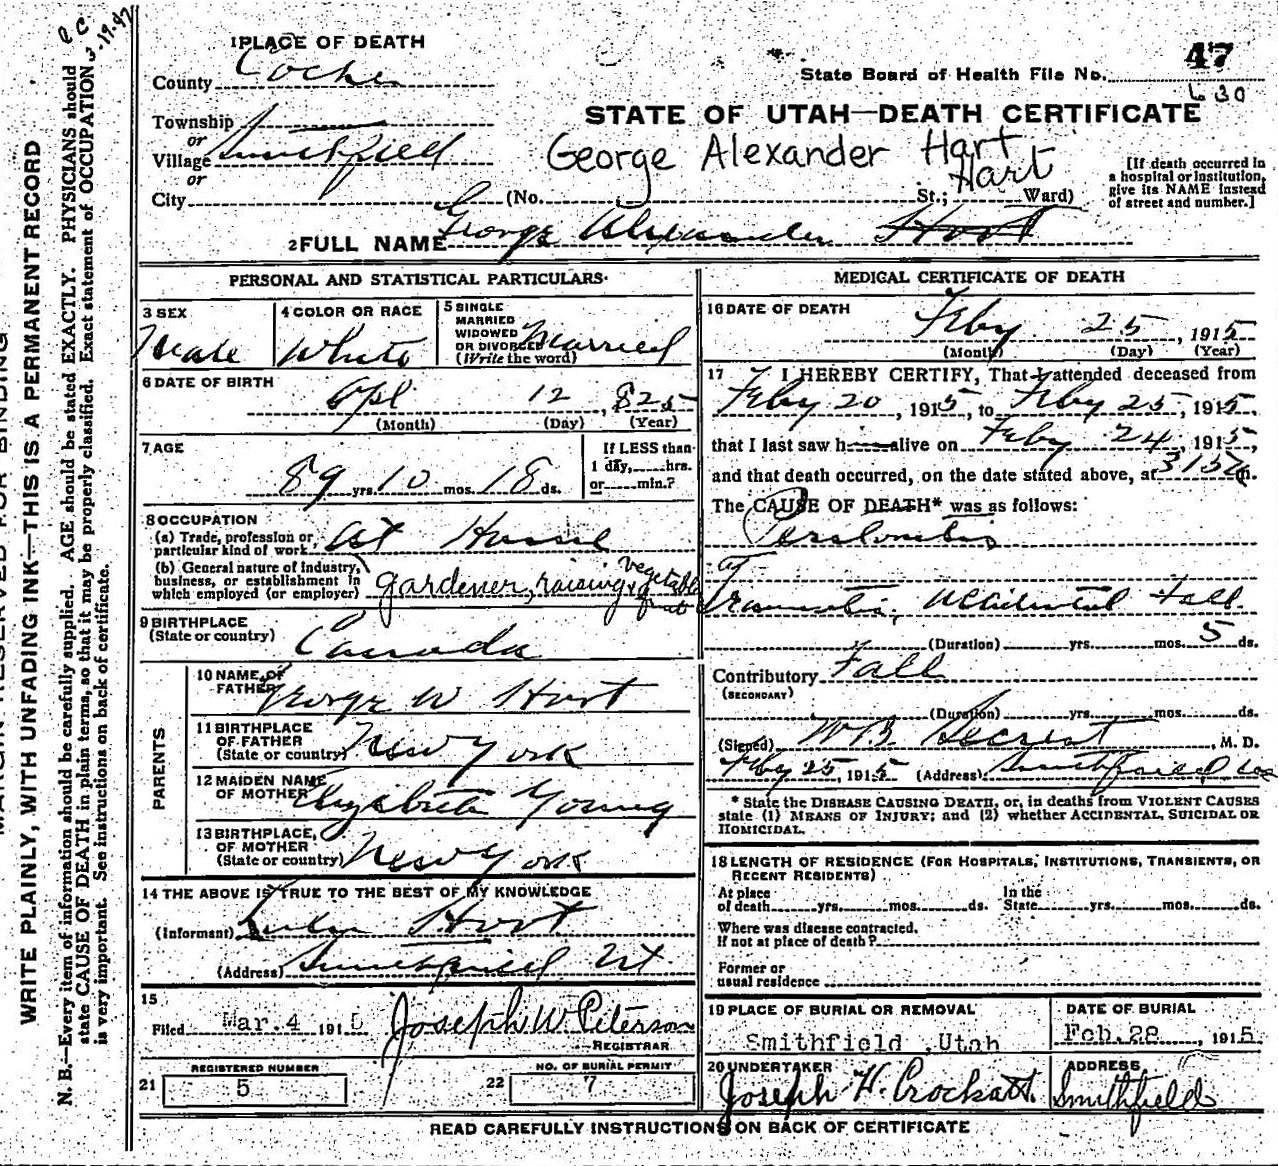 1 PLACE OF DEATH
County Cache
Township
or
Village Smithfield
or
City (No. St.; Ward)
State Board of Health File No. 47
630
STATE OF UTAH—DEATH CERTIFICATE
George Alexander Hart
Hart
[If death occurred in
a hospital or institution,
give its NAME instead
of street and number.]
2 FULL NAME George Alexander Hart
PERSONAL AND STATISTICAL PARTICULARS
3 SEX
Male
4 COLOR OR RACE
White
5 SINGLE
MARRIED
WIDOWED
OR DIVORCED
(Write the word)
Married
6 DATE OF BIRTH
Apl 12, 825
(Month) (Day) (Year)
7 AGE
89 yrs. 10 mos. 18 ds.
If LESS than
1 day, hrs.
or min.?
8 OCCUPATION
(a) Trade, profession or
particular kind of work At Home
(b) General nature of industry,
business, or establishment in
which employed (or employer) gardener, raising vegetable
& fruit
9 BIRTHPLACE
(State or country) Canada
PARENTS
10 NAME OF
FATHER George W Hart
11 BIRTHPLACE
OF FATHER
(State or country) New York
12 MAIDEN NAME
OF MOTHER Elizabeth Young
13 BIRTHPLACE
OF MOTHER
(State or country) New York
14 THE ABOVE IS TRUE TO THE BEST OF MY KNOWLEDGE
(Informant) Hart
(Address) Smithfield Ut
15
Filed Mar. 4 1915 Joseph W Peterson
REGISTRAR
21 REGISTERED NUMBER
5
22 NO. OF BURIAL PERMIT
7
MEDICAL CERTIFICATE OF DEATH
16 DATE OF DEATH
Feby 25, 1915
(Month) (Day) (Year)
17 I HEREBY CERTIFY, That I attended deceased from
Feby 20, 1915, to Feby 25, 1915,
that I last saw h alive on Feby 24, 1915,
and that death occurred, on the date stated above, at m.
The CAUSE OF DEATH* was as follows:
Peritonitis
Traumatic, Accidental Fall
(Duration) yrs. mos. 5 ds.
Contributory Fall
(SECONDARY)
(Duration) yrs. mos. ds.
(Signed) W B Secrest, M. D.
Feby 25, 1915 (Address) Smithfield
* State the DISEASE CAUSING DEATH, or, in deaths from VIOLENT CAUSES
state (1) MEANS OF INJURY; and (2) whether ACCIDENTAL, SUICIDAL OR
HOMICIDAL.
18 LENGTH OF RESIDENCE (FOR HOSPITALS, INSTITUTIONS, TRANSIENTS, OR
RECENT RESIDENTS)
At place
of death yrs. mos. ds.
In the
State yrs. mos. ds.
Where was disease contracted,
if not at place of death?
Former or
usual residence
19 PLACE OF BURIAL OR REMOVAL
Smithfield ,Utah
DATE OF BURIAL
Feb. 28, 1915
20 UNDERTAKER
Joseph H. Crockatt.
ADDRESS
Smithfield
READ CAREFULLY INSTRUCTIONS ON BACK OF CERTIFICATE
MARGIN RESERVED FOR BINDING
WRITE PLAINLY, WITH UNFADING INK—THIS IS A PERMANENT RECORD
N. B.—Every item of information should be carefully supplied. AGE should be stated EXACTLY. PHYSICIANS should
state CAUSE OF DEATH in plain terms, so that it may be properly classified. Exact statement of OCCUPATION
is very important. See instructions on back of certificate.